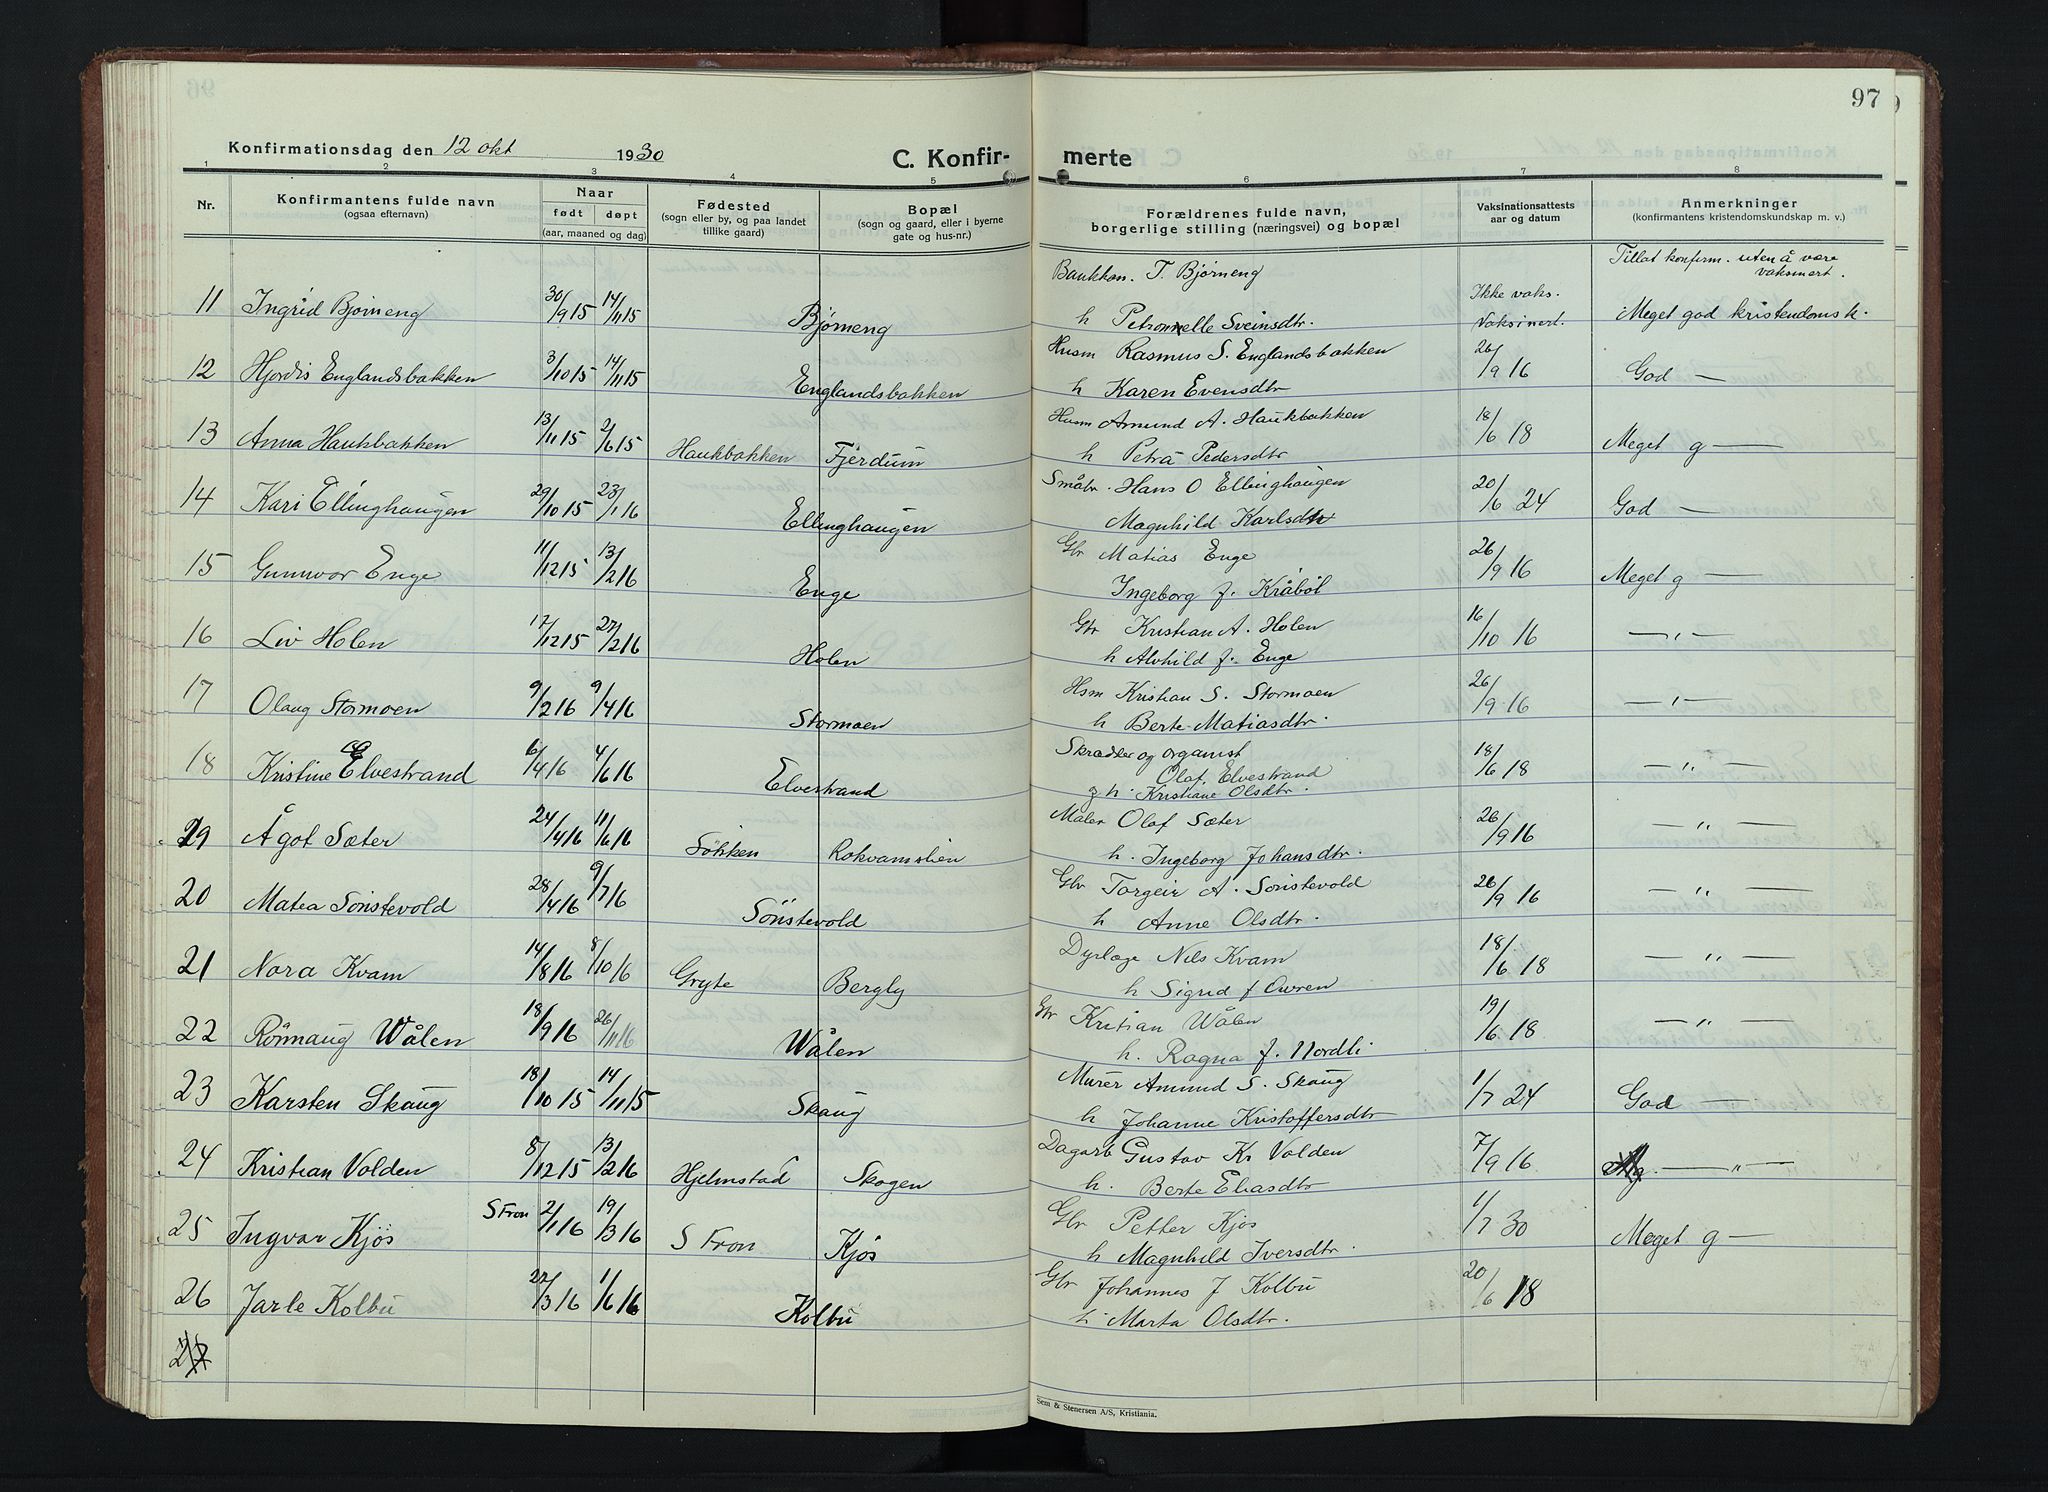 97
Konfirmationsdag den 12 okt 1930
C. Konfir- merte
1 2 3 4 5 6 7 8
Nr.
Konfirmantens fulde navn
(ogsaa efternavn)
Naar
født døpt
(aar, maaned og dag)
Fødested
(sogn eller by, og paa landet
tillike gaard)
Bopæl
(sogn og gaard, eller i byerne
gate og hus-nr.)
Forældrenes fulde navn,
borgerlige stilling (næringsvei) og bopæl
Vaksinationsattests
aar og datum
Anmerkninger
(konfirmantens kristendomskundskap m. v.)
Bankkas. T. Bjørneng Tillat konfirm. uten å være
vaksinert.
11 Ingrid Bjørneng 30/9 15 14/11 15 Bjørneng h Petronelle Sveinsdtr. Ikke vaks. Meget god kristendomsk.
Vaksinert.
Husm Rasmus S. Englandsbakken
12 Hjørdis Englandsbakken 3/10 15 14/11 15 Englandsbakken h Karen Evensdtr 26/9 16 God —
Husm Amund A. Haukbakken
13 Anna Haukbakken 13/11 15 2/6 15 Haukbakken Fjerdum h Petra Pedersdtr 18/6 18 Meget g —
Småbr. Hans O Ellinghaugen
14 Kari Ellinghaugen 29/10 15 23/1 16 Ellinghaugen Magnhild Karlsdtr 20/6 24 God —
Gbr Matias Enge
15 Gunnvor Enge 11/12 15 13/2 16 Enge Ingeborg f. Kråbøl 26/9 16 Meget g —
Gbr Kristian A. Holen
16 Liv Holen 17/12 15 27/2 16 Holen h Alvhild f. Enge 16/10 16 — " —
Hsm Kristian S. Stormoen
17 Olaug Stormoen 9/2 16 9/4 16 Stormoen h Berte Matiasdtr. 26/9 16 — " —
Skrædder og organist
18 Kristine Elvestrand 6/4 16 4/6 16 Elvestrand Olaf Elvestrand 18/6 18 — " —
g h. Kristiane Olsdtr.
Maler Olaf Sæter
19 Ågot Sæter 24/4 16 11/6 16 Søkken Rokvamslien h. Ingeborg Johansdtr. 26/9 16 — " —
Gbr Torgeir A. Sønstevold
20 Matea Sønstevold 28/4 16 9/7 16 Sønstevold h Anne Olsdtr. 26/9 16 — " —
Dyrlæge Nils Kvam
21 Nora Kvam 14/8 16 8/10 16 Gryte Bergly h Sigrid f Owren 18/6 18 — " —
Gbr Kristian Wålen
22 Rønnaug Wålen 18/9 16 26/11 16 Wålen h. Ragna f. Nordli 19/6 18 — " —
Murer Amund S. Skaug
23 Karsten Skaug 18/10 15 14/11 15 Skaug h Johanne Kristoffersdtr 1/7 24 God —
Dagarb Gustav Kr Volden
24 Kristian Volden 8/12 15 13/2 16 Hjelmstad Skogen h. Berte Eliasdtr 7/9 16 — " —
Gbr Petter Kjøs
25 Ingvar Kjøs S Fron 2/1 16 19/3 16 S Fron Kjøs h Magnhild Iversdtr. 1/7 30 Meget g —
Gbr Johannes J Kolbu
26 Jarle Kolbu 27/3 16 1/6 16 Kolbu h Marta Olsdtr. 20/6 18
27
Sem & Stenersen A/S, Kristiania.